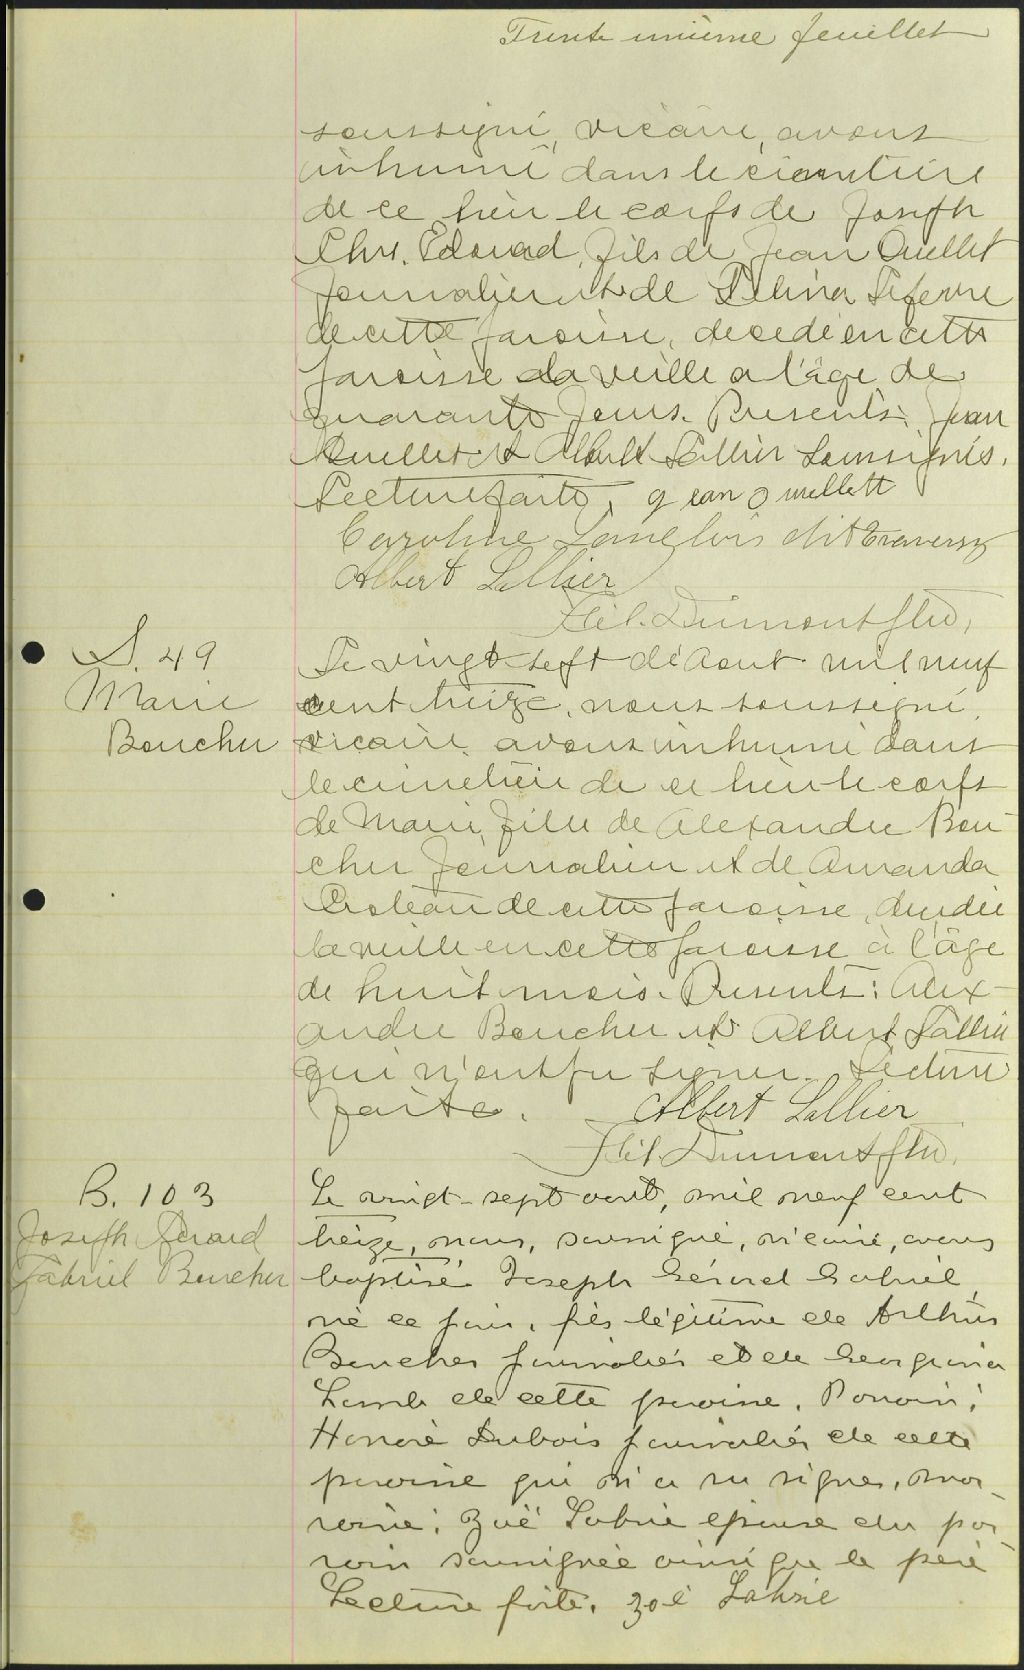 Trente unième feuillet
soussigné, vicaire, avons
inhumé dans le cimetière
de ce lieu le corps de Joseph
Chs. Edouard, fils de Jean Ouellet
Journalier et de Célina Lefevre
de cette paroisse, décédé en cette
paroisse la veille a l'âge de
quarante jours. Présents: Jean
Ouellet et Albert Lallier soussignés.
Lecture faite, Jean Ouellett
Caroline Langlois dit Traversy
Albert Lallier
Fél. Dumont ptre,
S. 49
Marie
Boucher
Le vingt-sept d'Aout mil neuf
cent treize, nous soussigné,
vicaire avons inhumé dans
le cimetière de ce lieu le corps
de Marie, fille de Alexandre Bou-
cher Journalier et de Amanda
Croteau de cette paroisse, décédée
la veille en cette paroisse à l'âge
de huit mois. Présents: Alex-
andre Boucher et Albert Lallier
qui n'ont pu signer. Lecture
faite. Albert Lallier
Fél. Dumont ptre,
B. 103
Joseph Gérard
Gabriel Boucher
Le vingt-sept août, mil neuf cent
treize, nous, soussigné, vicaire, avons
baptisé Joseph Gérard Gabriel,
né ce jour, fils légitime de Arthur
Boucher journalier et de Georgiana
Lamb de cette paroisse. Parrain:
Honoré Dubois journalier de cette
paroisse qui n'a su signer, mar-
raine: Zoë Labrie épouse du par-
rain soussignée ainsi que le père
Lecture faite. Zoé Labrie